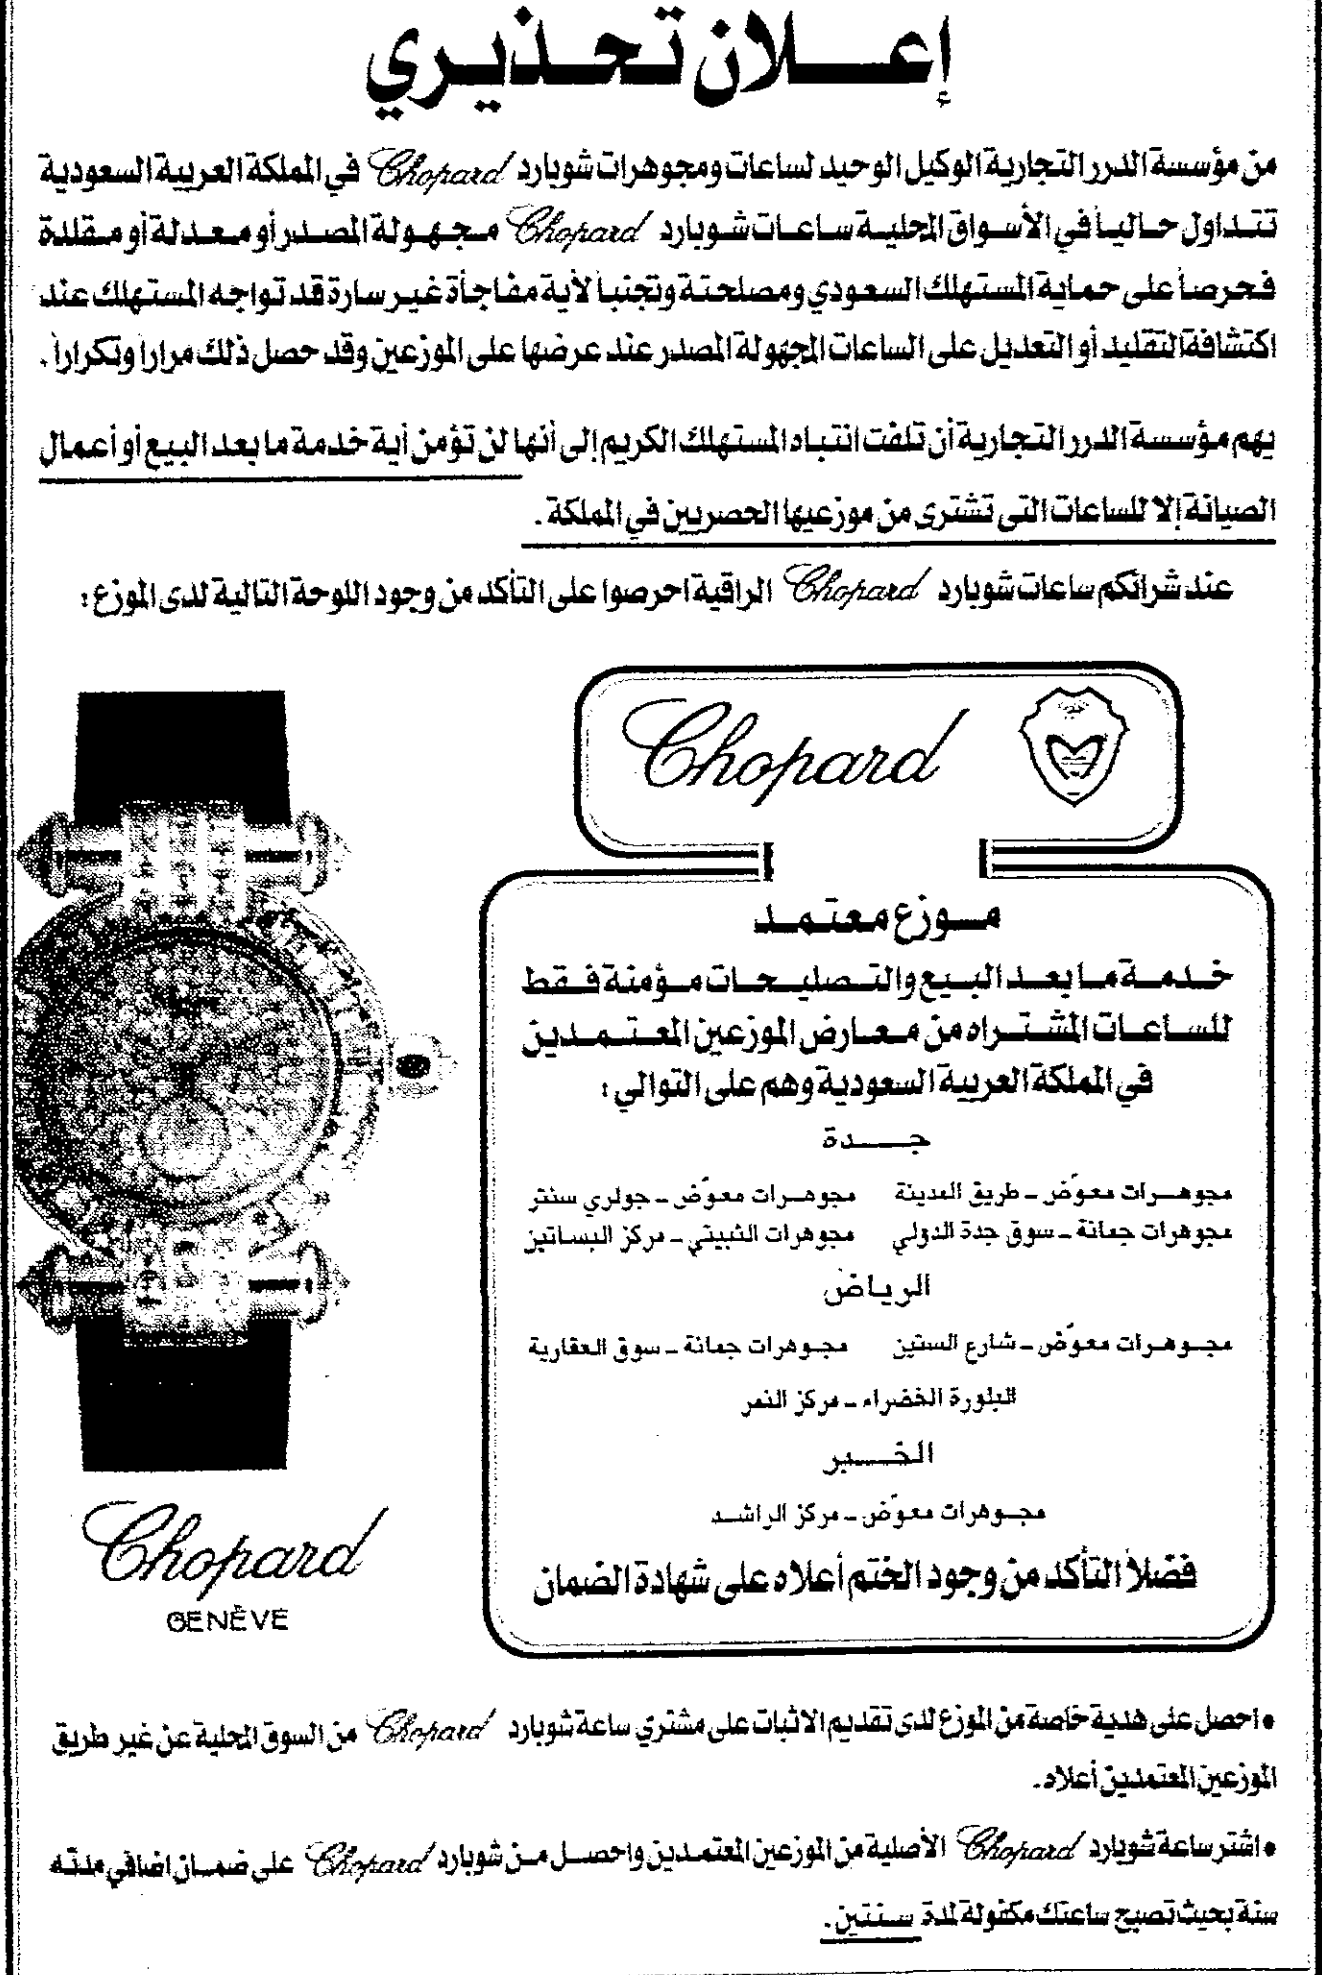 إعلان تحذيري
من مؤسسة الدرر التجارية الوكيل الوحيد لساعات ومجوهرات شوبارد Chopard في المملكة العربية السعودية
تتداول حالياً في الأسواق المحلية ساعات شوبارد Chopard مجهولة المصدر أو معدلة أو مقلدة
فحرصاً على حماية المستهلك السعودي ومصلحتة وتجنباً لأية مفاجأة غير سارة قد تواجه المستهلك عند
اكتشافة التقليد أو التعديل على الساعات المجهولة المصدر عند عرضها على الموزعين وقد حصل ذلك مراراً وتكراراً .
يهم مؤسسة الدرر التجارية أن تلفت انتباه المستهلك الكريم إلى أنها لن تؤمن أية خدمة ما بعد البيع أو أعمال
الصيانة إلا للساعات التى تشترى من موزعيها الحصريين في المملكة .
عند شرائكم ساعات شوبارد Chopard الراقية احرصوا على التأكد من وجود اللوحة التالية لدى الموزع :
Chopard
موزع معتمد
خدمة ما بعد البيع والتصليحات مؤمنة فقط
للساعات المشتراه من معارض الموزعين المعتمدين
في المملكة العربية السعودية وهم على التوالي :
جدة
مجوهرات معوّض ـ طريق المدينة مجوهرات معوّض ـ جولري سنتر
مجوهرات جمانة ـ سوق جدة الدولي مجوهرات الثبيتي ـ مركز البساتين
الرياض
مجوهرات معوّض ـ شارع الستين مجوهرات جمانة ـ سوق العقارية
البلورة الخضراء ـ مركز النمر
الخبر
مجوهرات معوّض ـ مركز الراشد
فضلاً التأكد من وجود الختم أعلاه على شهادة الضمان
Chopard
GENÈVE
• احصل على هدية خاصة من الموزع لدى تقديم الاثبات على مشتري ساعة شوبارد Chopard من السوق المحلية عن غير طريق
الموزعين المعتمدين أعلاه .
• اشتر ساعة شوبارد Chopard الأصلية من الموزعين المعتمدين واحصل من شوبارد Chopard على ضمان اضافي مدته
سنة بحيث تصبح ساعتك مكفولة لمدة سنتين .